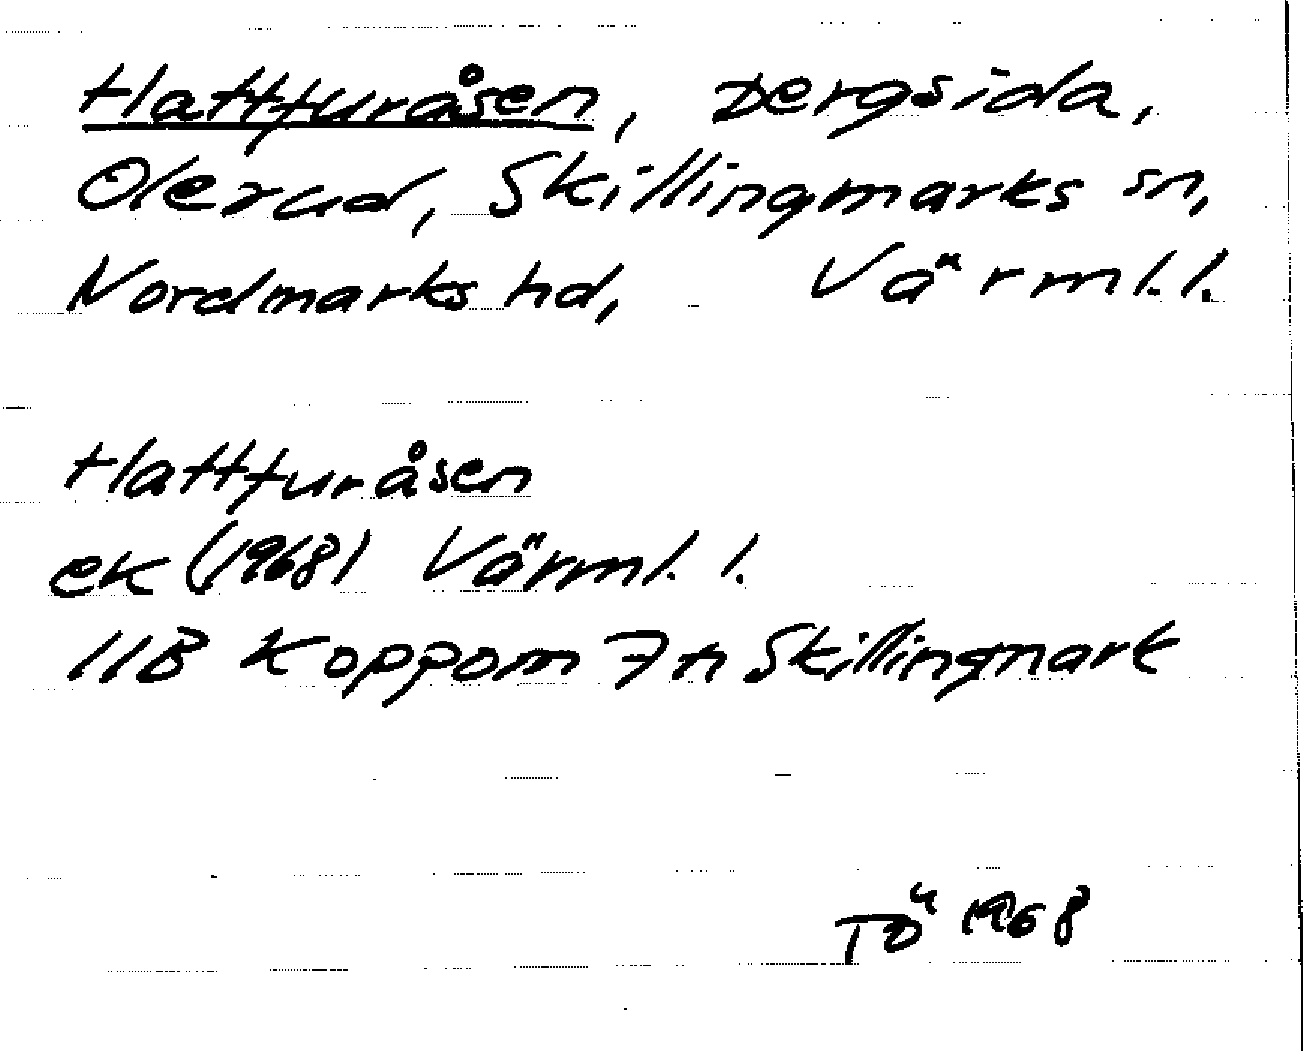 Hattfuråsen, bergsida,
Olerud, Skillingmarks sn,
Nordmarks hd, Värml.l.
Hattfuråsen
ek (1968) Värml. l.
11B Koppom 7 h Skillingmark
TÖ 1968